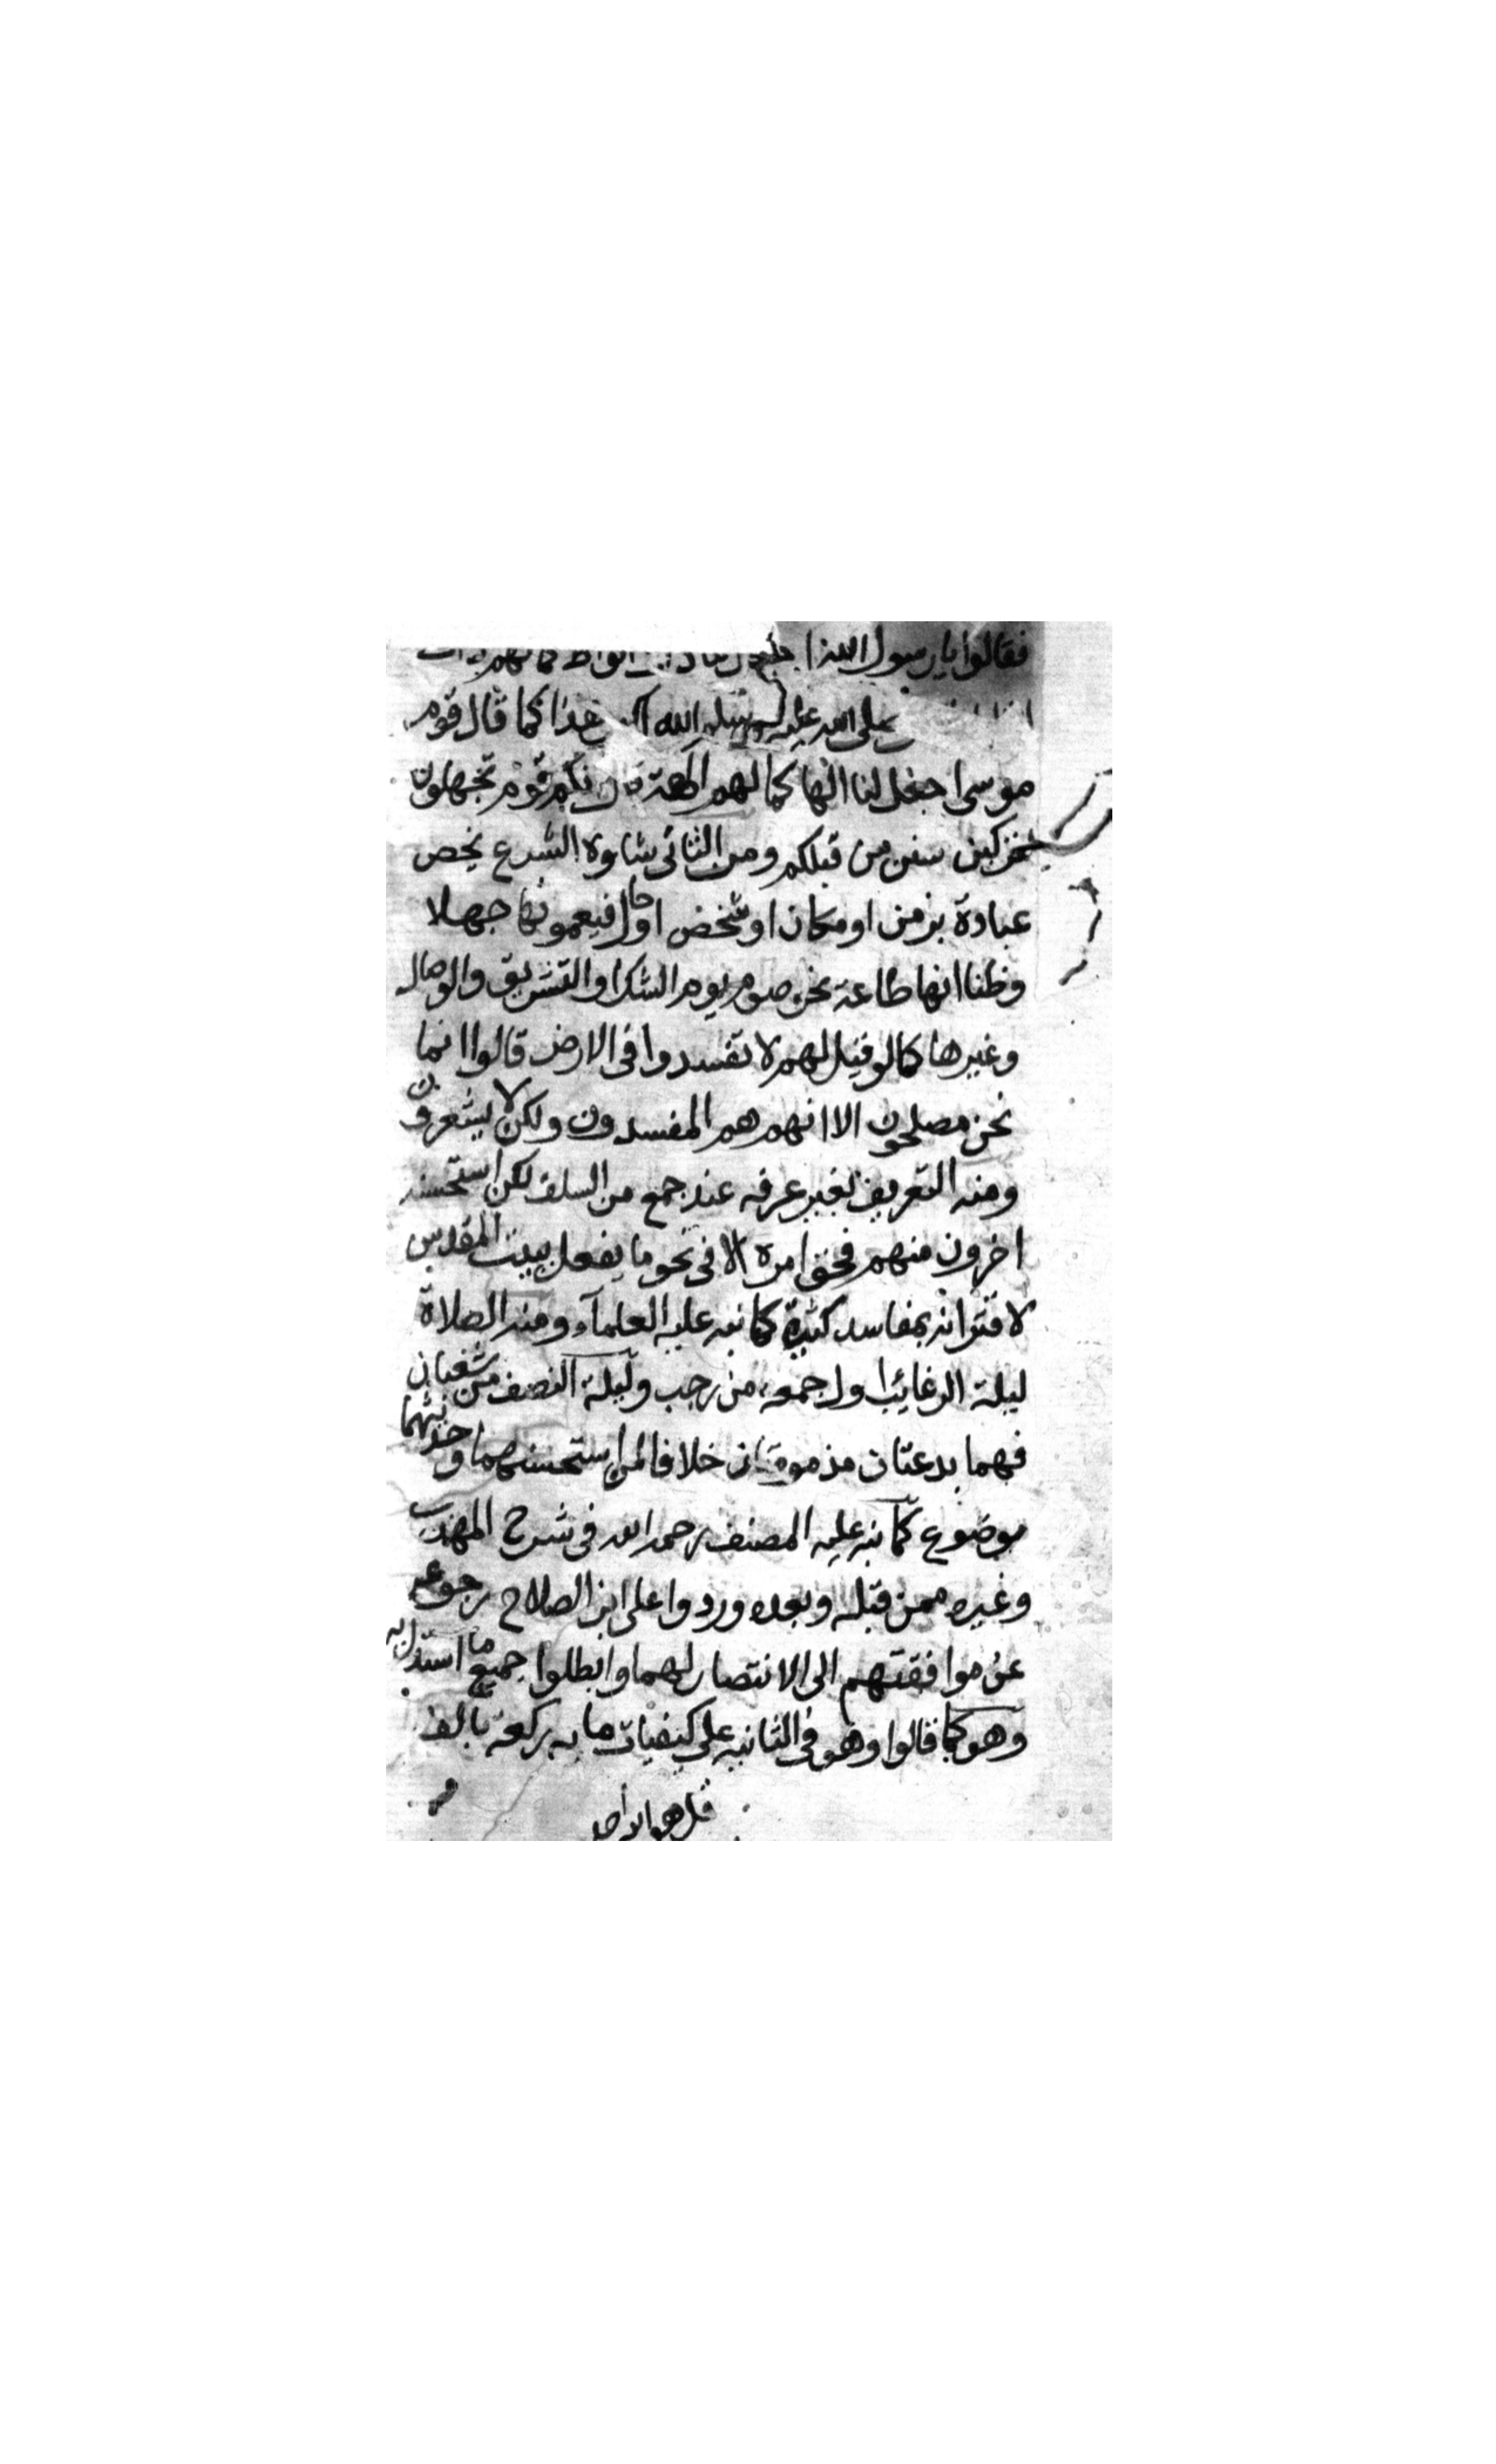 فقالوا يا رسول الله اجعل لنا ذات انواط كما لهم ذات
صلى الله عليه وسلم الله اكبر هذا كما قال قوم
موسى اجعل لنا الها كما لهم الهة قال انكم قوم تجهلون
لتركبن سنن من قبلكم ومن الثاني شاوة الشرع يخص
عبادة بزمن او مكان او شخص او حال فيعمونها جهلا
وظنا انها طاعة نحو صوم يوم الشك او التشريق والوصال
وغيرها كما لو قيل لهم لا تفسدوا في الارض قالوا انما
نحن مصلحون الا انهم هم المفسدون ولكن لا يشعرون
ومنه التعريف بغير عرفه عند جمع من السلف لكن استحسنه
اخرون منهم فخف امره الا في نحو ما يفعل ببيت المقدس
لاقترانه بمفاسد كثيرة كما نبه عليه العلمآء ومنه الصلاة
ليلة الرغائب اول جمعه من رجب وليلة النصف من شعبان
فهما بدعتان مذمومتان خلافا لمن استحسنهما وحديثهما
موضوع كما نبه عليه المصنف رحمه الله في شرح المهذب
وغيره ممن قبله وبعده وردوا على ابن الصلاح رجوعه
عن موافقتهم الى الانتصار لهما وابطلوا جميع ما استدل به
وهو كما قالوا وهو في الثانيه على كيفيات مايه ركعة بالف
قل هو الله احد